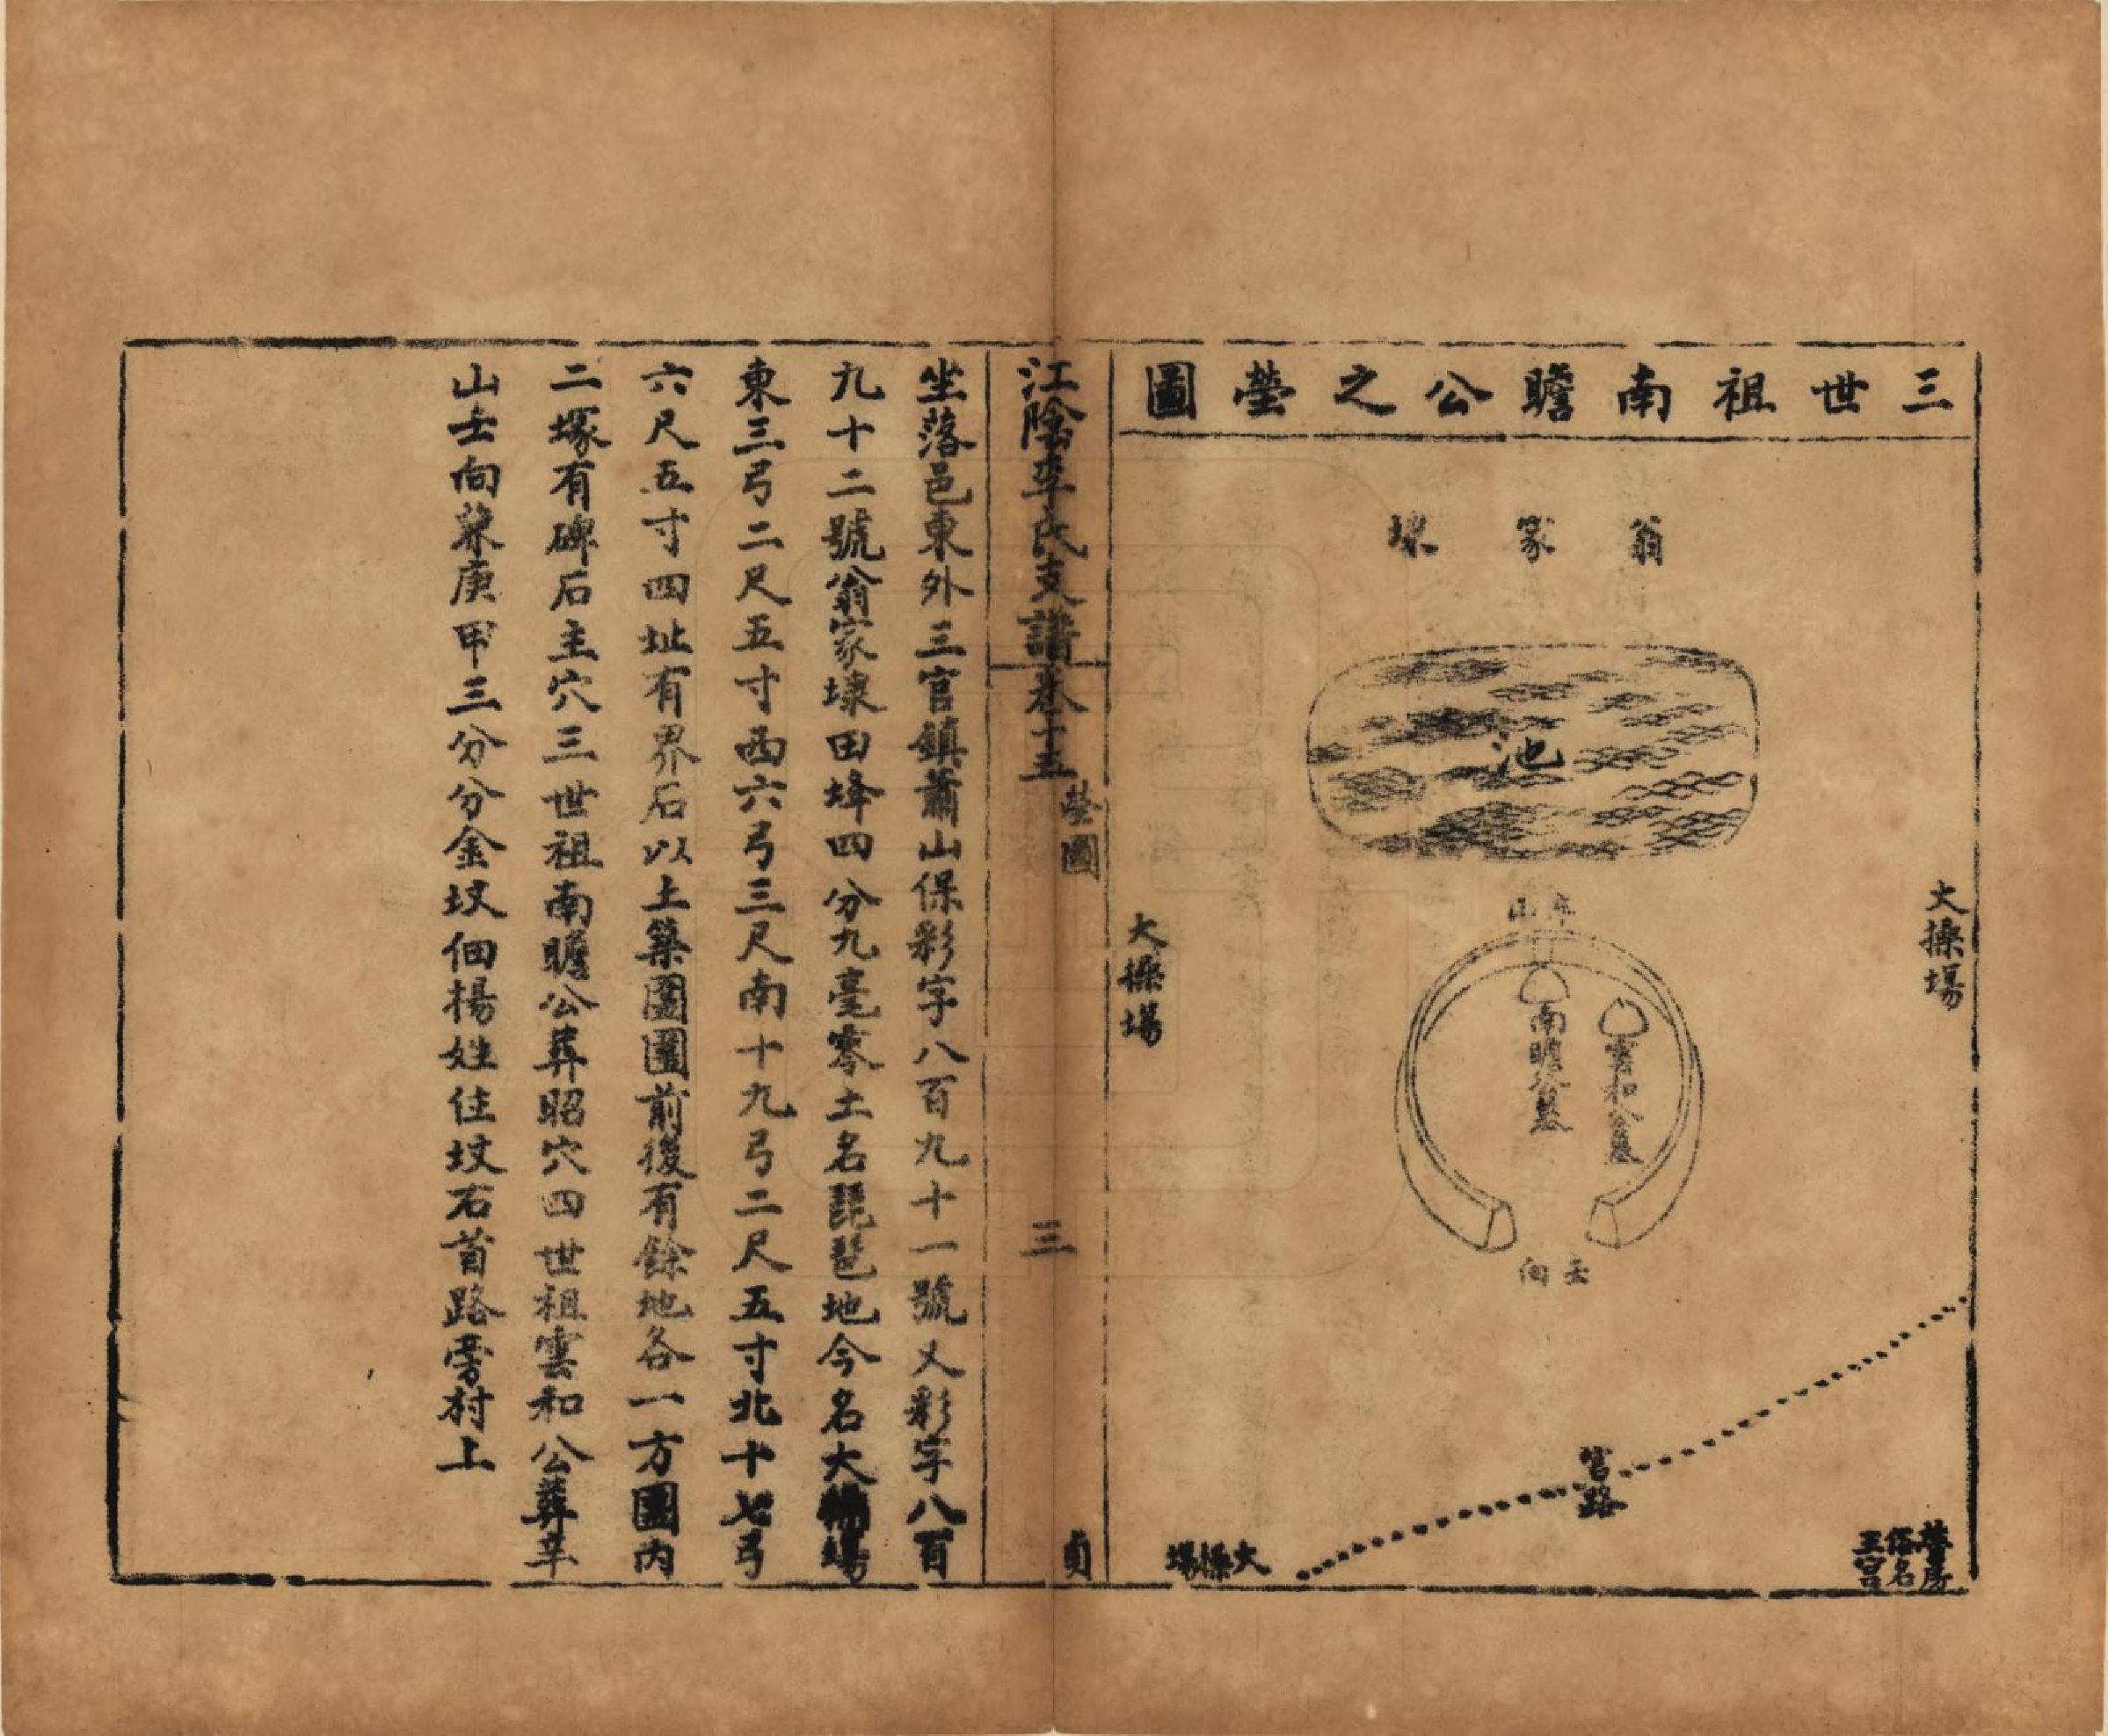 三世祖南瞻公之塋圖
翁家埭
池
大操場
山
南瞻公墓
雲和公墓
壬向
官路
俗名
大操場
大操場
江陰李氏支譜卷十五
塋圖
三
貞
坐落邑東外三官鎮蕭山保彩字八百九十一號又彩字八百
九十二號翁家埭田埄四分九毫零土名琵琶地今名大操場
東三弓二尺五寸西六弓三尺南十九弓二尺五寸北十七弓
六尺五寸四址有界石以土築圍圍前後有餘地各一方圍內
二塚有碑石主穴三世祖南瞻公葬昭穴四世祖雲和公葬羊
山壬向兼庚甲三分分金坟佃楊姓住坟右首路旁村上